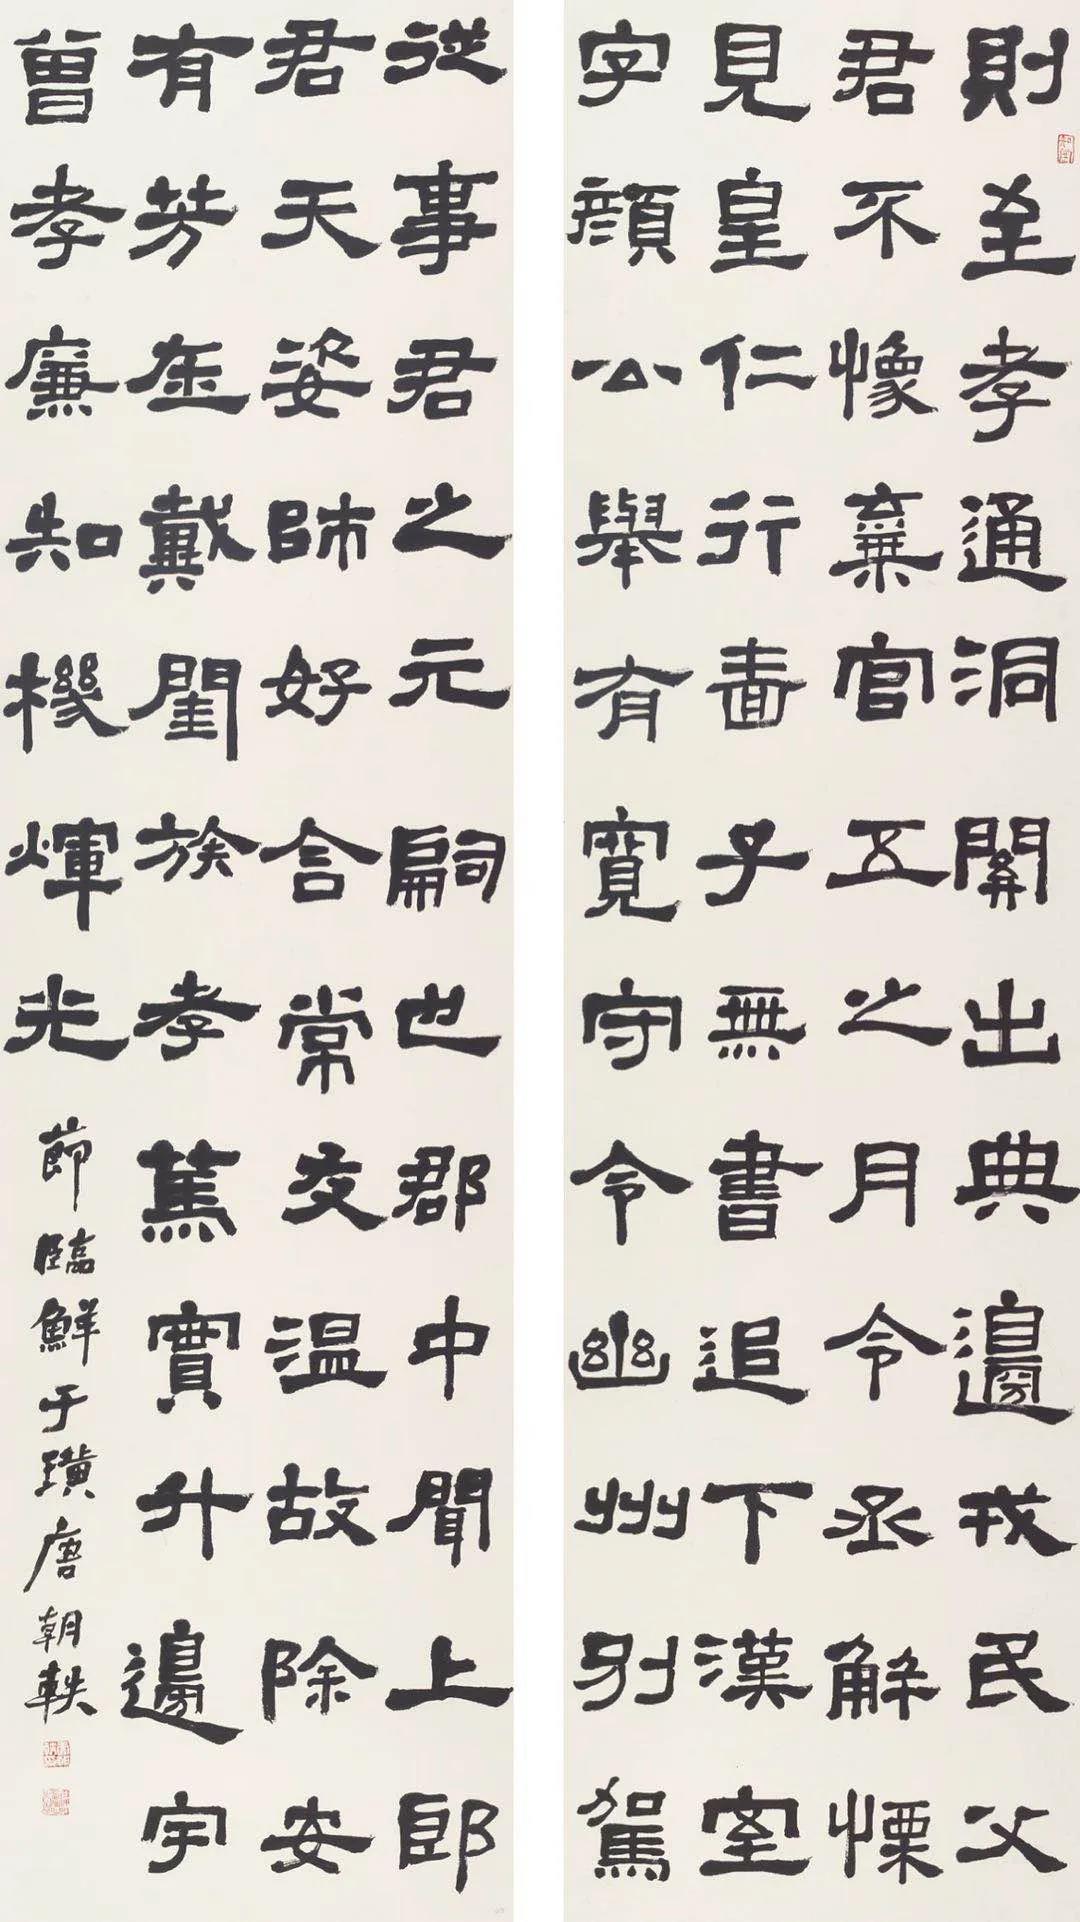 則至孝通洞開出典邊戎民父
君不棄官五之月令丞解慄
見皇仁行子無書追下漢室
字顏公舉有寬守令幽州別駕
從事君之元嗣也郡中聞上郎
君天姿師好言常交温故除安
有芳在戴閨族孝篤實升邊宇
曾孝廉知機煇光
節臨鮮于璜唐朝軼